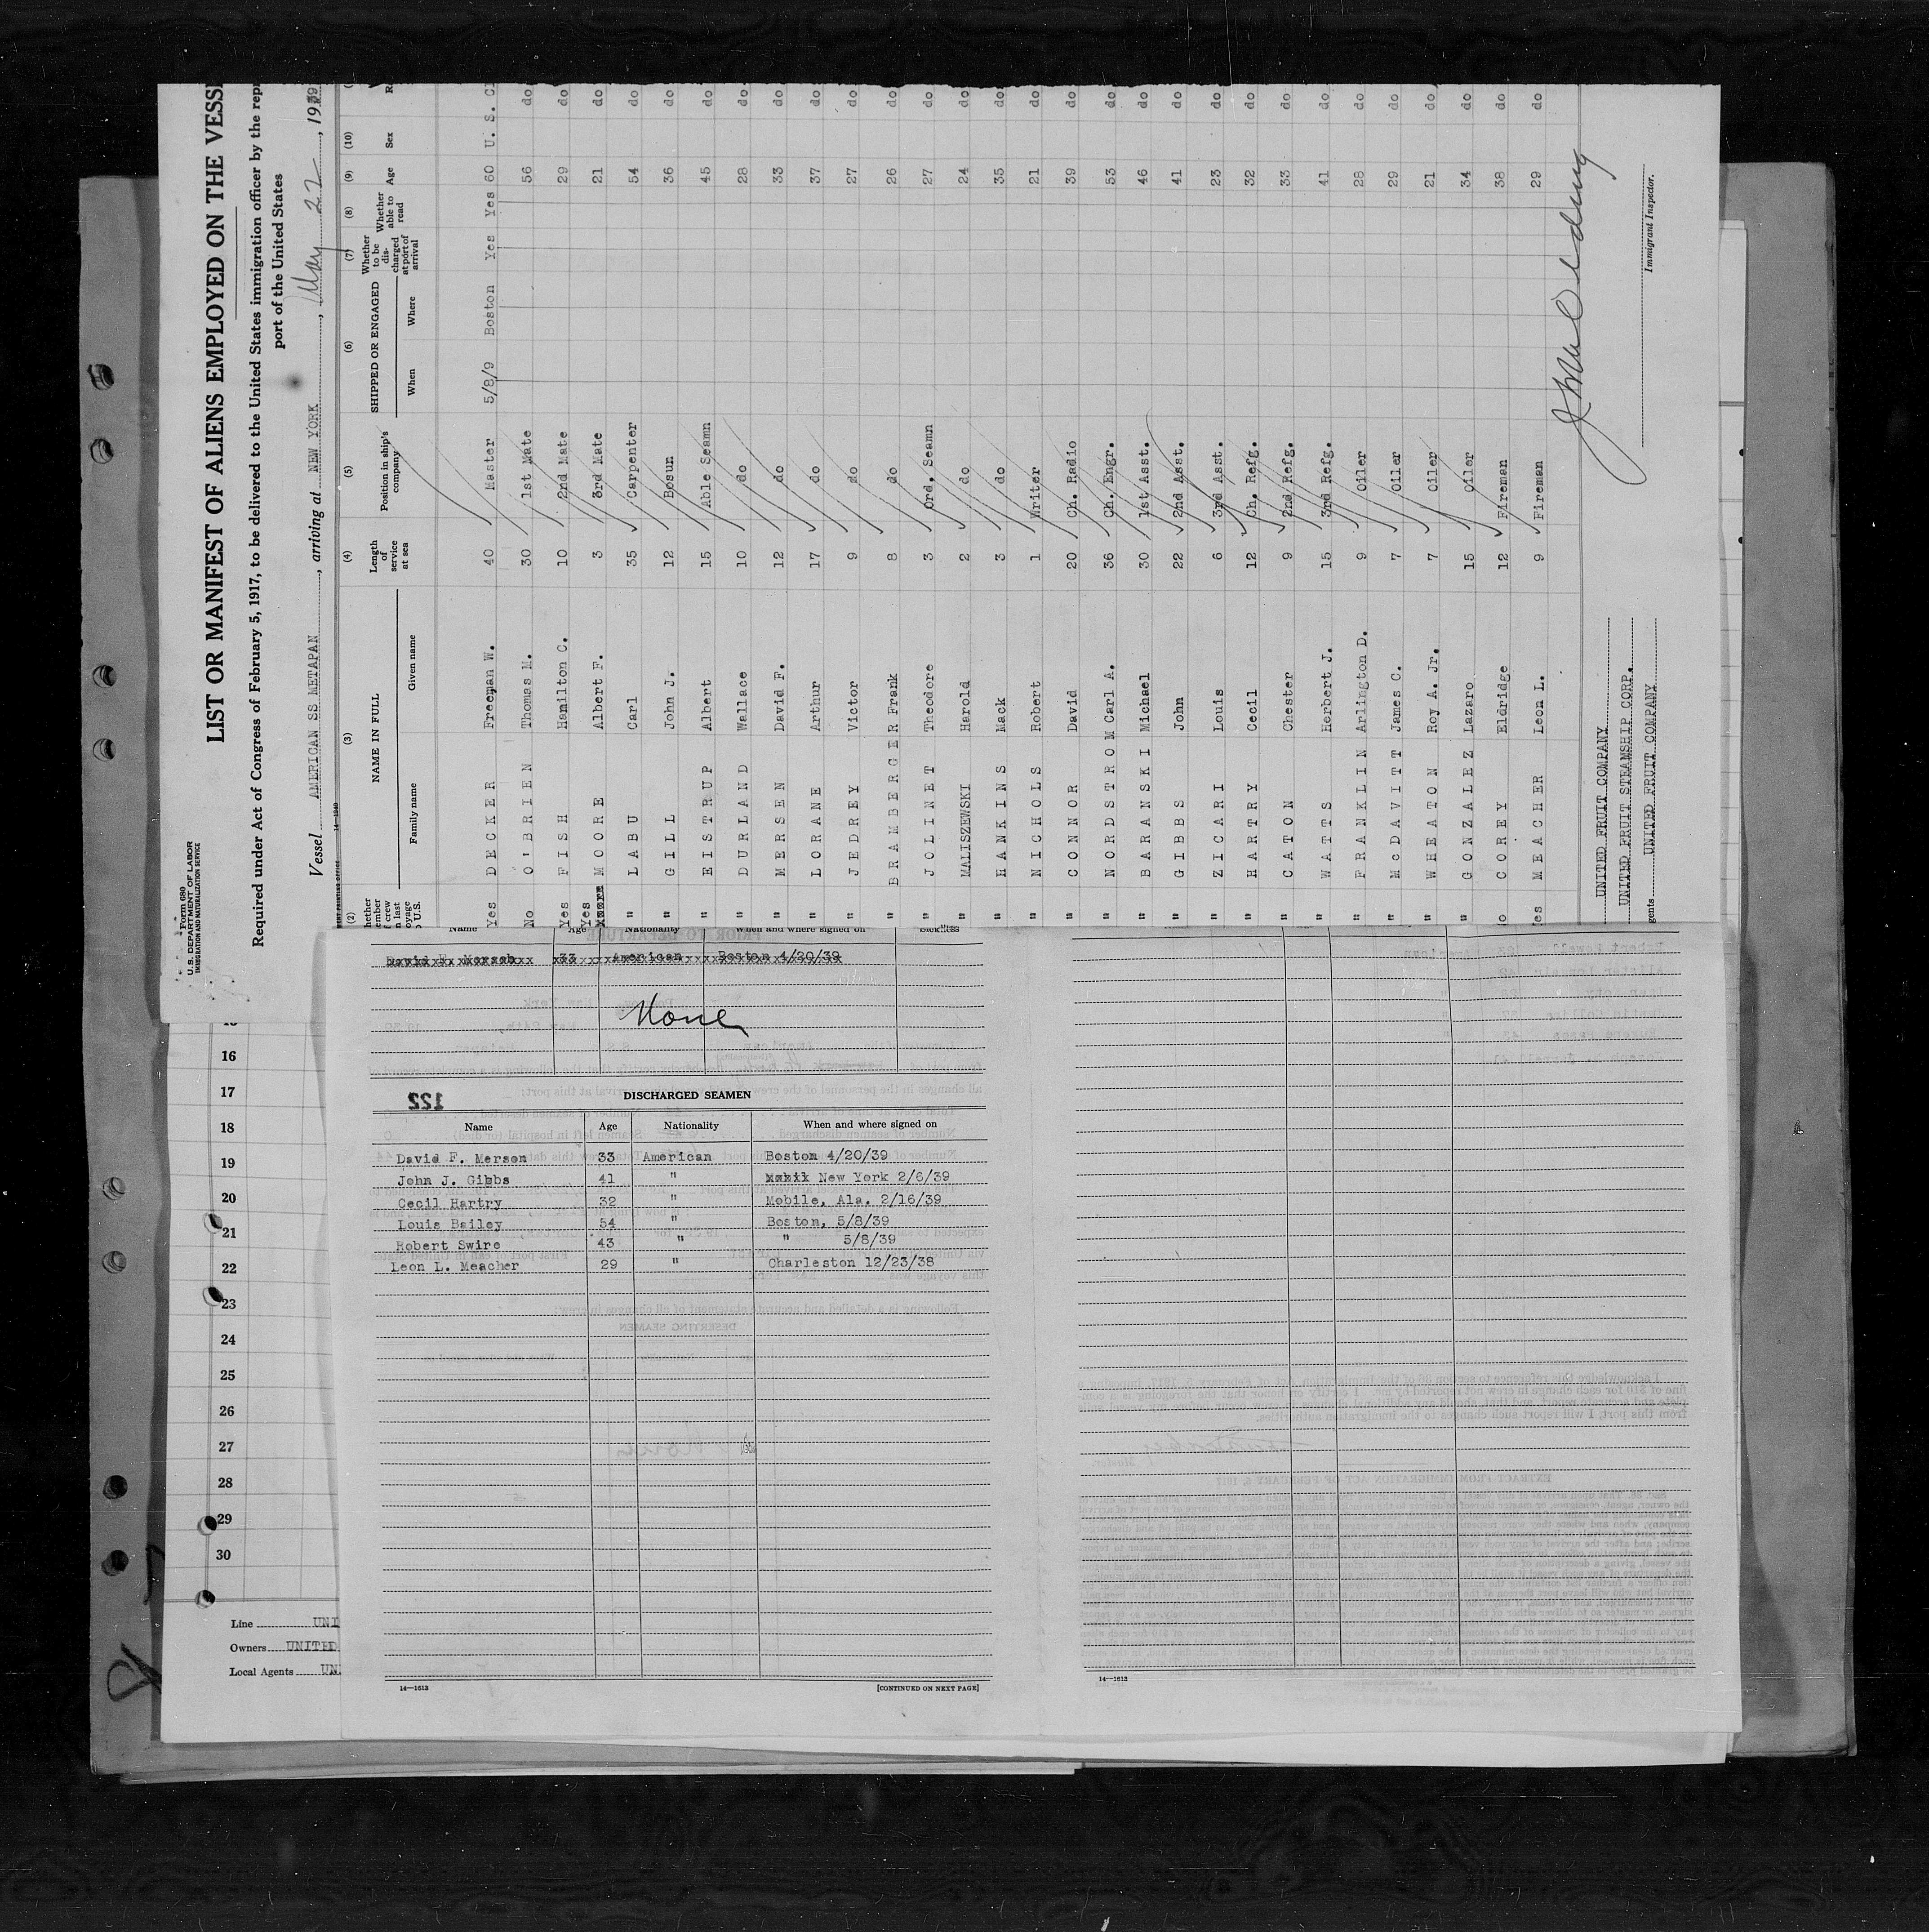 Form 680
U. S. DEPARTMENT OF LABOR
IMMIGRATION AND NATURALIZATION SERVICE
LIST OR MANIFEST OF ALIENS EMPLOYED ON THE VESSE
Required under Act of Congress of February 5, 1917, to be delivered to the United States immigration officer by the repr
port of the United States
Vessel AMERICAN SS METAPAN, arriving at NEW YORK, May 22, 1939
(2) (3) (4) (5) (6) (7) (8) (9) (10)
NAME IN FULL
Family name Given name
Length of service at sea
Position in ship's company
SHIPPED OR ENGAGED
When Where
Whether to be discharged at port of arrival
Whether able to read
Age
Sex
Yes DECKER Freeman W. 40 Master 5/8/9 Boston Yes Yes 60 U. S. C
No O'BRIEN Thomas M. 30 1st Mate 56 do
Yes FISH Hamilton C. 10 2nd Mate 29 do
Yes MOORE Albert F. 3 3rd Mate 21 do
" LABU Carl 35 Carpenter 54 do
" GILL John J. 12 Bosun 36 do
" EISTRUP Albert 15 Able Seamn 45 do
" DURLAND Wallace 10 do 28 do
" MERSEN David F. 12 do 33 do
" LORANE Arthur 17 do 37 do
" JEDREY Victor 9 do 27 do
" BRAMBERGER Frank 8 do 26 do
" JOLINET Theodore 3 Ord. Seamn 27 do
" MALISZEWSKI Harold 2 do 24 do
" HANKINS Mack 3 do 35 do
" NICHOLS Robert 1 Writer 21 do
" CONNOR David 20 Ch. Radio 39 do
" NORDSTROM Carl A. 36 Ch. Engr. 53 do
" BARANSKI Michael 30 1st Asst. 46 do
" GIBBS John 22 2nd Asst. 41 do
" ZICARI Louis 6 3rd Asst. 23 do
" HARTRY Cecil 12 Ch. Refg. 32 do
" CATON Chester 9 2nd Refg. 33 do
" WATTS Herbert J. 15 3rd Refg. 41 do
" FRANKLIN Arlington D. 9 Oiler 28 do
" McDAVITT James C. 7 Oiler 29 do
" WHEATON Roy A. Jr. 7 Oiler 21 do
" GONZALEZ Lazaro 15 Oiler 34 do
No COREY Eldridge 12 Fireman 38 do
Yes MEACHER Leon L. 9 Fireman 29 do
UNITED FRUIT COMPANY
UNITED FRUIT STEAMSHIP CORP.
gents UNITED FRUIT COMPANY
Immigrant Inspector.
Name Age Nationality When and where signed on Sickness
33 American Boston 4/20/39
None
122
DISCHARGED SEAMEN
Name Age Nationality When and where signed on
David F. Merson 33 American Boston 4/20/39
John J. Gibbs 41 " New York 2/6/39
Cecil Hartry 32 " Mobile, Ala. 2/16/39
Louis Bailey 54 " Boston, 5/8/39
Robert Swire 43 " " 5/8/39
Leon L. Meacher 29 " Charleston 12/23/38
14—1613 [CONTINUED ON NEXT PAGE]
14—1613
16
17
18
19
20
21
22
23
24
25
26
27
28
29
30
Line UNI
Owners UNITED
Local Agents UN